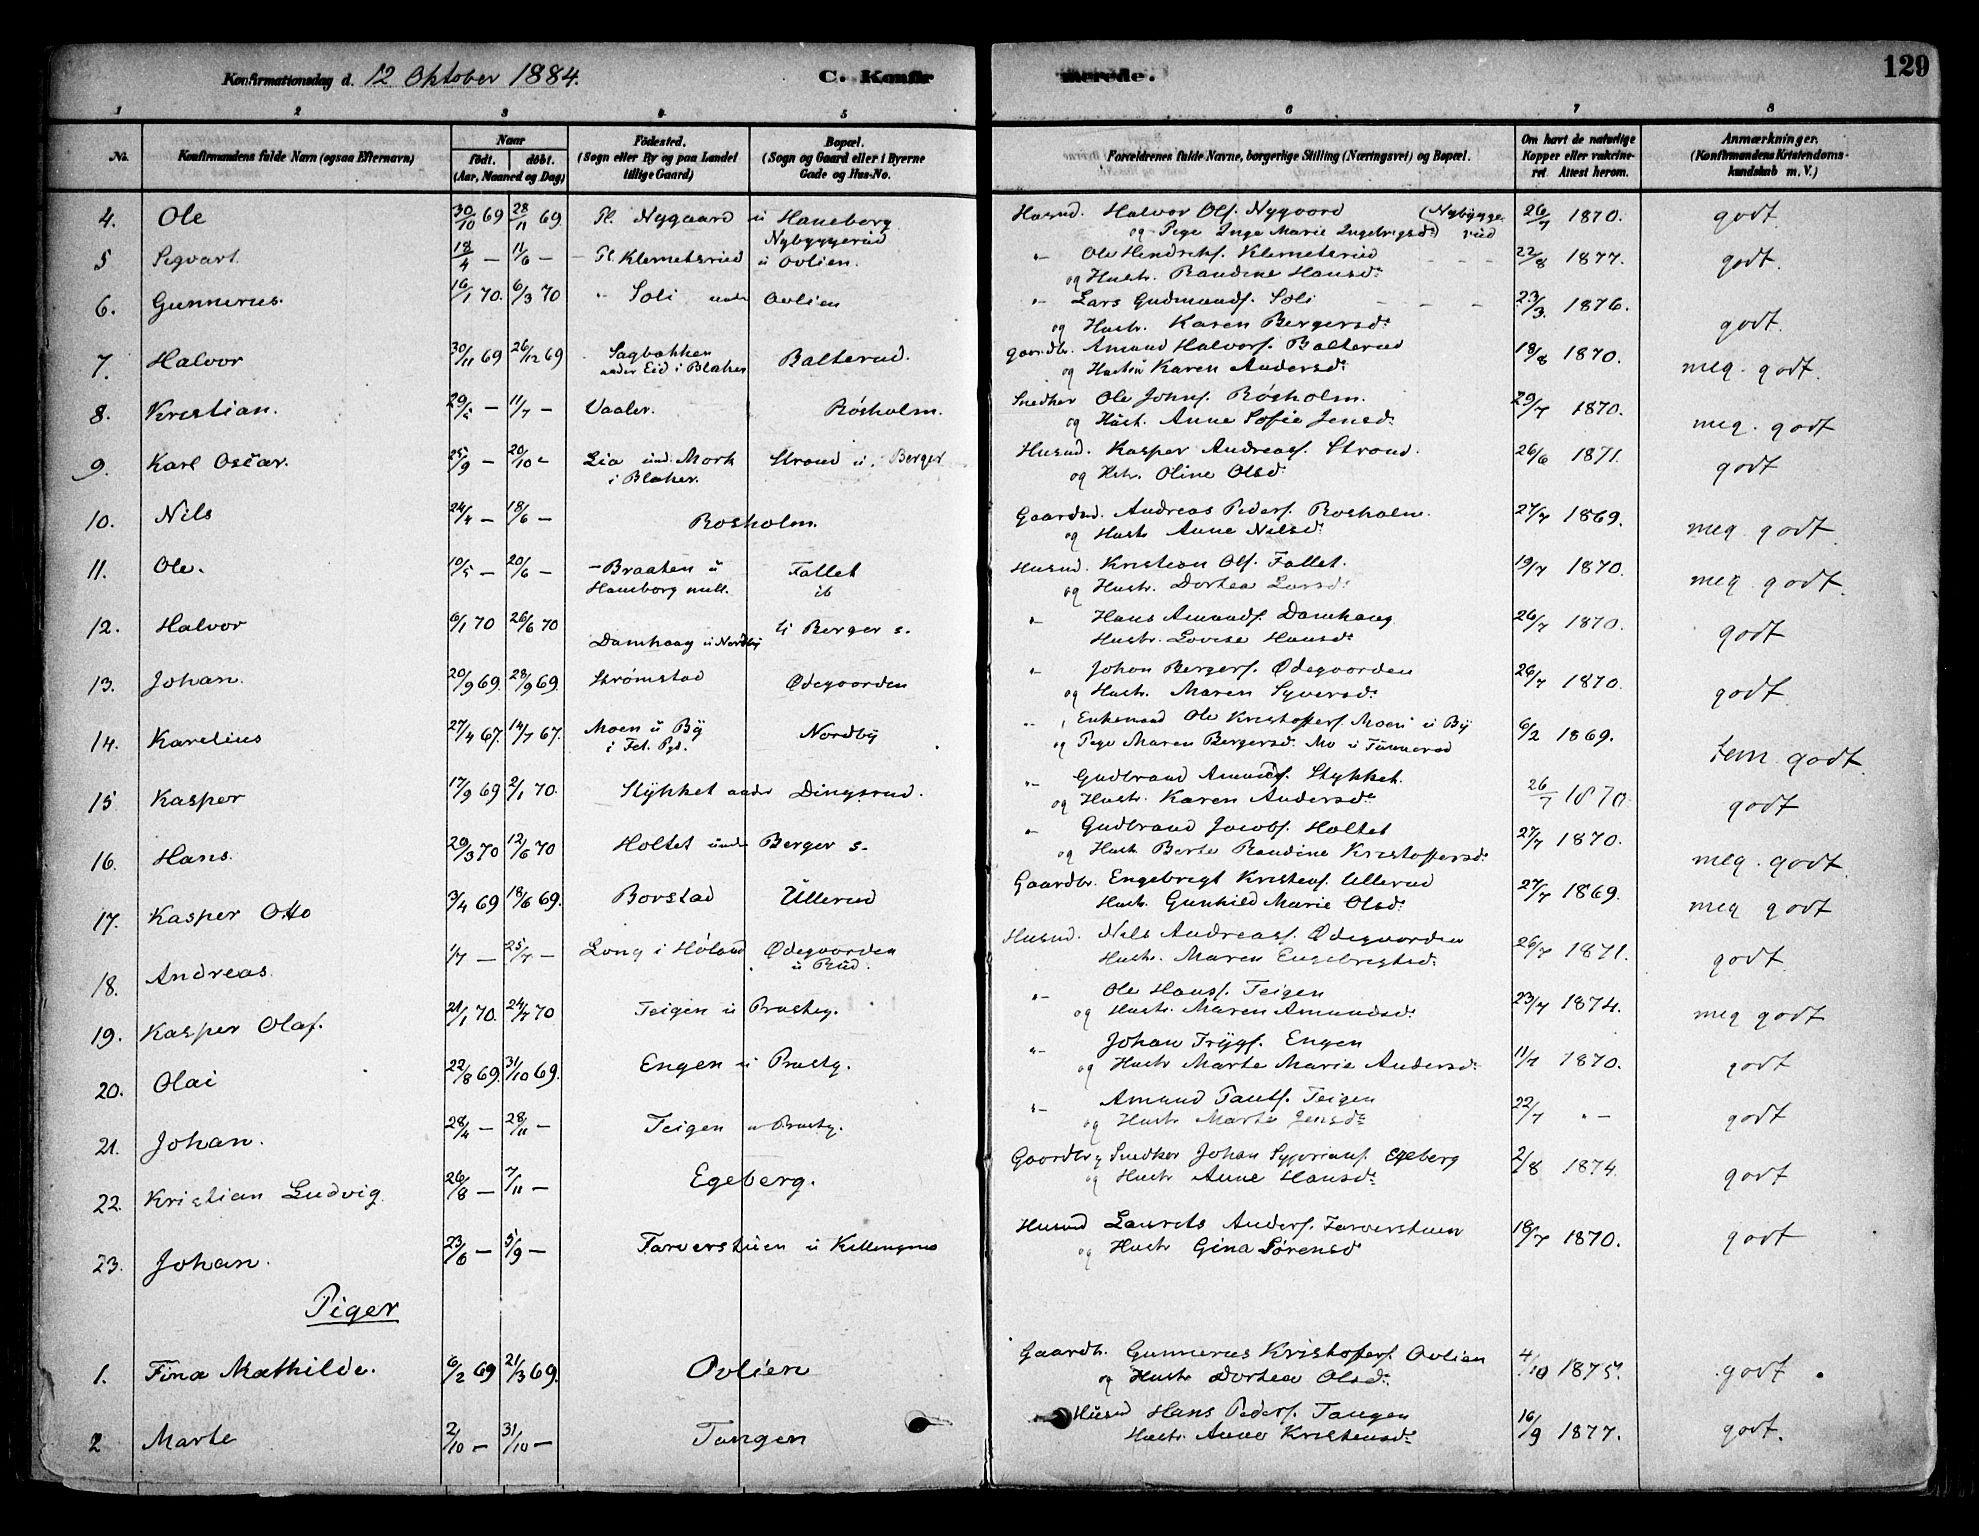 Konfirmationsdag d. 12 Oktober 1884. C. Konfirmerede. 129
1 2 3 4 5 6 7 8
No. Konfirmandens fulde Navn (ogsaa Efternavn) Naar født. døbt. (Aar, Maaned og Dag) Fødested. (Sogn eller By og paa Landet tillige Gaard) Bopæl. (Sogn og Gaard eller i Byerne Gade og Hus-No. Forældrenes fulde Navne, borgerlige Stilling (Næringsvei) og Bopæl. Om havt de naturlige Kopper eller vakcineret. Attest herom. Anmærkninger. (Konfirmandens Kristendomskundskab m. V.)
4. Ole 30/10 69 28/11 69. Pl. Nygaard u Haneborg Husmd. Halvor Ols. Nygaard (Nybyggerud 26/7 1870. godt
og Pige Inge Marie Ingebrigtsd:)
5 Sigvart. 18/4 — 11/6 — Pl. Klemetsrud Nybyggerud u Ovlien. „ Ole Hendriks. Klemetsrud 22/8 1877. godt.
og Hustr. Randine Hansd:
6. Gunnerus. 16/1 70. 6/3 70 „ Soli under Ovlien „ Lars Gudmunds. Soli 23/3. 1876. godt.
og Hustr. Karen Bergersd:
7. Halvor 30/11 69 26/12 69 Sagbakken under Eid i Blaker Balterud. Gaardbr. Amund Halvors. Balterud 18/8 1870. meg. godt.
og Hustru Karen Andersd:
8. Kristian. 29/5 — 11/7 — Vaaler. Røsholm. Snedker Ole Johns. Røsholm. 29/7 1870. meg. godt
og Hust. Anne Sofie Jensd:
9. Karl Oscar. 25/9 — 20/10 — Lia und. Mork i Blaker. Strand u. Berger Husmd. Kasper Andreass. Strand. 26/6 1871. godt
og Hstr. Oline Olsd:
10. Nils 24/4 — 18/6 — Rosholm. Gaardmd. Andreas Peders. Rosholm. 27/7 1869. meg godt
og Hustr Anne Nilsd:
11. Ole. 10/5 — 20/6 — Braaten u Haneborg Fallet ib Husmd. Kristian Ols. Fallet. 19/7 1870. meg godt
og Hustr. Dortea Larsd:
12. Halvor 6/1 70 26/6 70 Damhaug u Nordby U Berger s. „ Hans Amunds. Damhaug 26/7 1870. godt
Hustr. Lovise Hansd:
13. Johan. 20/9 69. 28/9 69. Strømstad Ødegaarden „ Johan Bergers. Ødegaarden 26/7 1870. godt
og Hustr. Maren Syversd:
14. Karelius 27/4 67. 14/7 67. Moen u By i Fet. Pgd. Nordby „ Enkemand Ole Kristoffers. Moen u By 6/2 1869. tem godt.
og Pige Maren Bergersd: Mo u Tünnerud
15 Kasper 17/9 69 2/1 70. Stykket under Dingsrud. „ Gudbrand Amunds. Stykket. 26/7 1870. godt
og Hustr. Karen Andersd:
16. Hans. 29/3 70 12/6 70 Holtet under Berger s. „ Gudbrand Jacobs. Holtet 27/7 1870. meg. godt.
og Hustr Berte Randine Kristoffersd:
17. Kasper Otto 3/4 69 18/6 69. Borstad Ullerud Gaardbr. Engebregt Kristens. Ullerud 27/7 1869. meg godt
Hustr. Gunhild Marie Olsd:
18. Andreas. 1/7 — 25/7 — Long i Høland Ødegaarden u Rud. Husmd. Nils Andreass. Ødegaarden 26/7 1871. godt.
Hustr. Maren Engebrigtsd:
19. Kasper Olaf. 21/1 70. 24/7 70 Teigen u Prestg. „ Ole Hanss. Teigen 23/7 1874. meg godt
og Hustr. Maren Amundsd:
20. Olai 22/8 69. 31/10 69. Engen u Prestg. „ Johan Trygs. Engen 11/7 1870. godt
og Hustr Marte Marie Andersd:
21. Johan. 28/4 — 28/11 — Teigen u Prestg. „ Amund Pauls. Teigen 22/7 „ — godt
og Hustr Marte Jensd:
22. Kristian Ludvig 26/8 — 7/11 — Egeberg. Gaardbr og Snedker Johan Syverians. Egeberg 2/8 1874. godt
og Hustr Anne Hansd:
23. Johan. 23/6 — 5/9 — Farverstuen u Kellengmo Husmd Laurits Anders. Farverstuen 18/7 1870. godt
og Hustr Gina Sørensd
Piger
1. Fina Mathilde. 6/2 69 21/3 69. Ovlien Gaardbr. Gunnerus Kristoffers. Ovlien 4/10 1875. godt
og Hustr Dortea Olsd:
2 Marte 2/10 — 31/10 — Tangen Husmd Hans Peders. Tangen 16/9 1877. godt.
Hustr. Anne Kristensd: